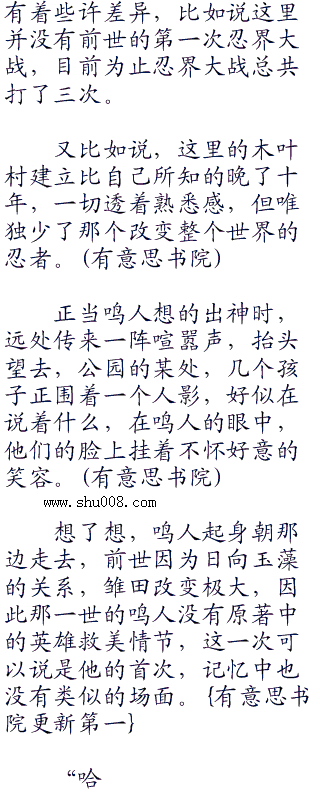 有着些许差异，比如说这里
并没有前世的第一次忍界大
战，目前为止忍界大战总共
打了三次。
又比如说，这里的木叶
村建立比自己所知的晚了十
年，一切透着熟悉感，但唯
独少了那个改变整个世界的
忍者。(有意思书院)
正当鸣人想的出神时，
远处传来一阵喧嚣声，抬头
望去，公园的某处，几个孩
子正围着一个人影，好似在
说着什么，在鸣人的眼中，
他们的脸上挂着不怀好意的
笑容。(有意思书院)
www.shu008.com
想了想，鸣人起身朝那
边走去，前世因为日向玉藻
的关系，雏田改变极大，因
此那一世的鸣人没有原著中
的英雄救美情节，这一次可
以说是他的首次，记忆中也
没有类似的场面。{有意思书
院更新第一}
“哈